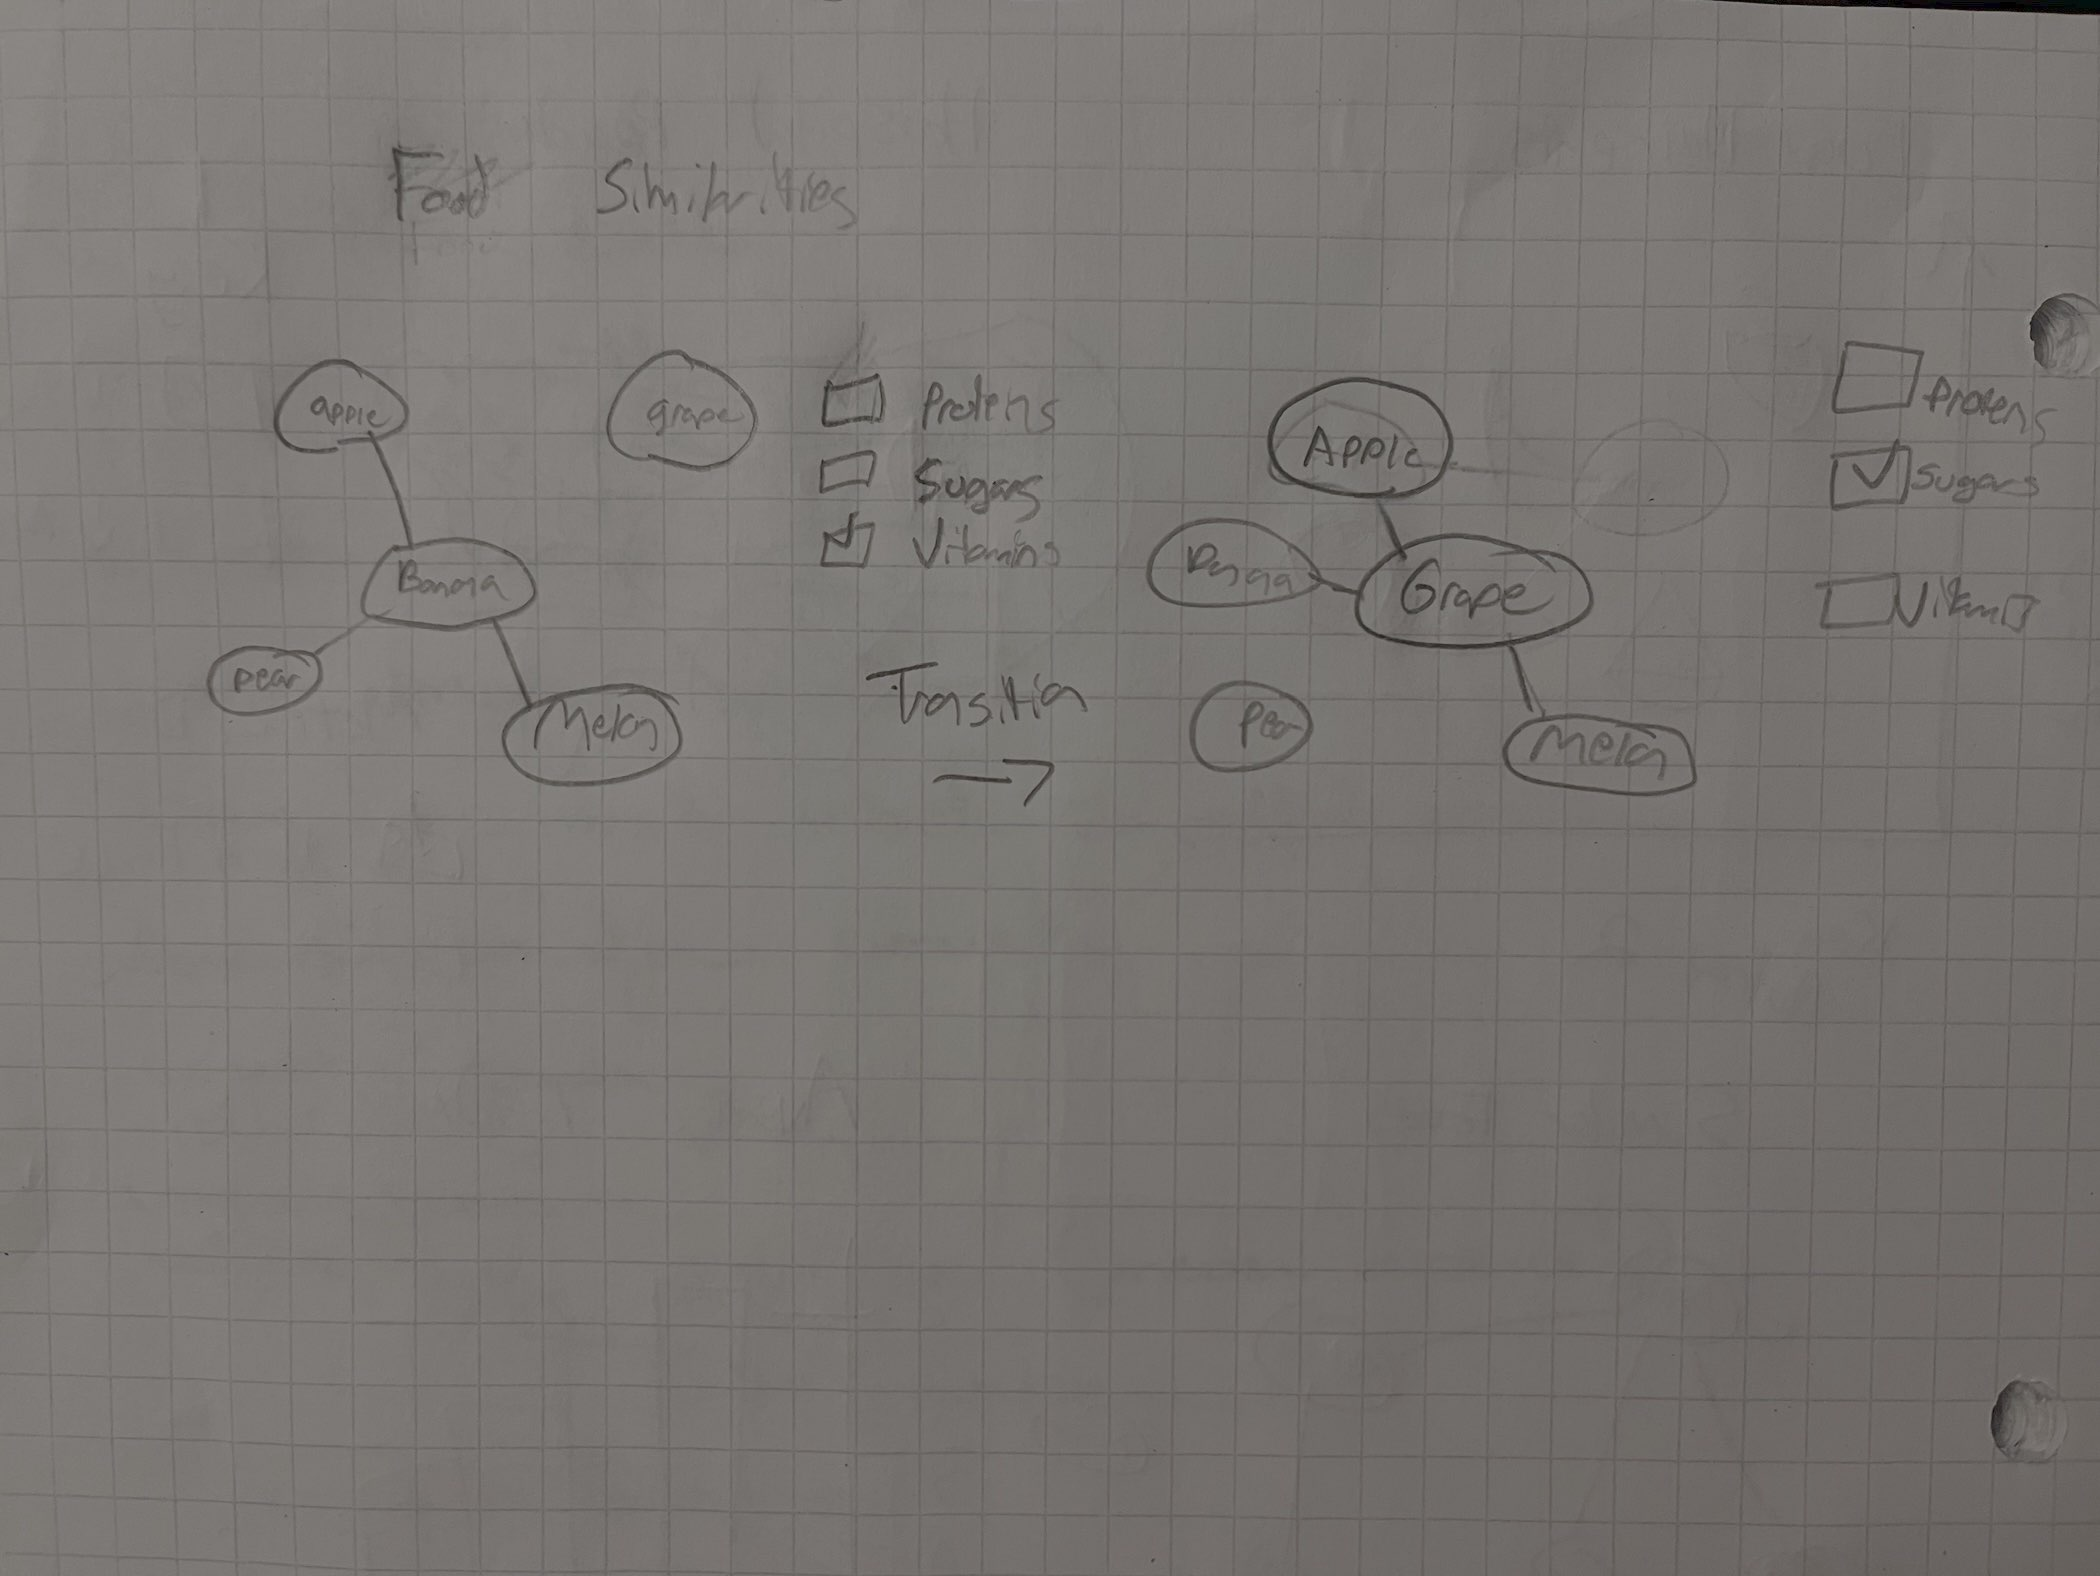 Food Similarities
apple
grape
Banana
pear
Melon
Protens
Sugars
Vitamins
Transition
Apple
Grape
Pear
Melon
Protens
Sugars